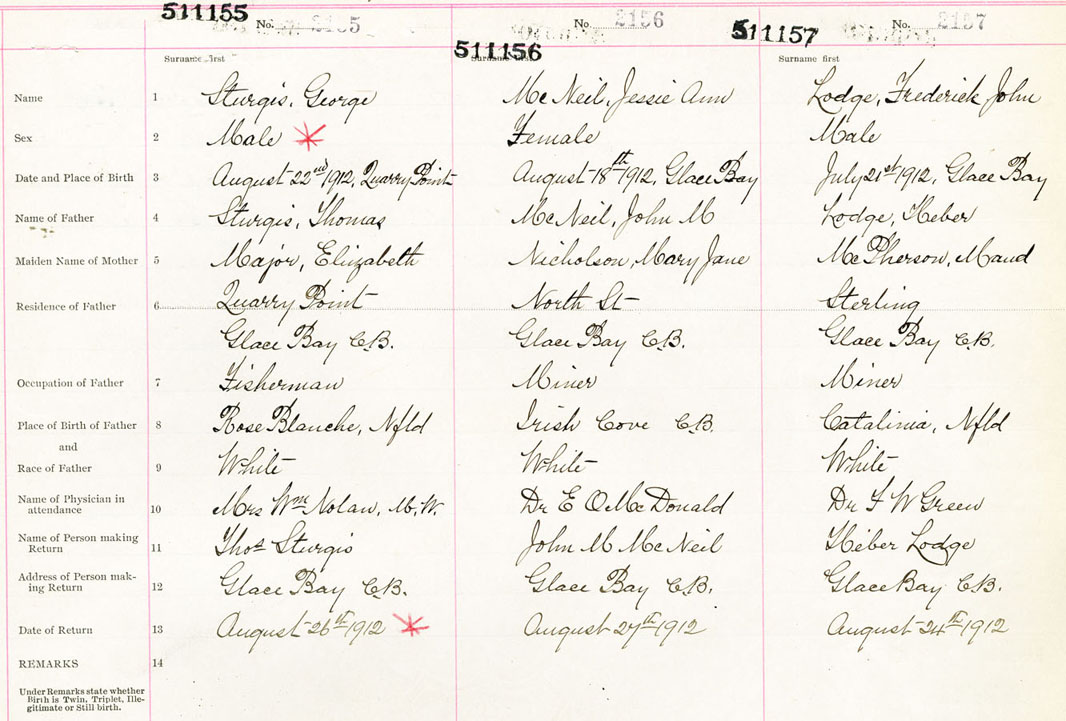 511155 No. 2155 No. 2156 No. 2157
511156 511157
Surname first Surname first Surname first
Name 1 Sturgis, George McNeil, Jessie Ann Lodge, Frederick John
Sex 2 Male Female Male
Date and Place of Birth 3 August 22nd 1912, Quarry Point August 18th 1912, Glace Bay July 21st 1912, Glace Bay
Name of Father 4 Sturgis, Thomas McNeil, John M Lodge, Heber
Maiden Name of Mother 5 Major, Elizabeth Nicholson, Mary Jane McPherson, Maud
Residence of Father 6 Quarry Point North St Sterling
Glace Bay C.B. Glace Bay C.B. Glace Bay C.B.
Occupation of Father 7 Fisherman Miner Miner
Place of Birth of Father 8 Rose Blanche, Nfld Irish Cove C.B. Catalinia, Nfld
and
Race of Father 9 White White White
Name of Physician in
attendance 10 Mrs Wm Nolan, M.W. Dr E O McDonald Dr F W Green
Name of Person making
Return 11 Thos Sturgis John M McNeil Heber Lodge
Address of Person mak-
ing Return 12 Glace Bay C.B. Glace Bay C.B. Glace Bay C.B.
Date of Return 13 August 26th 1912 August 27th 1912 August 24th 1912
REMARKS 14
Under Remarks state whether
Birth is Twin, Triplet, Ille-
gitimate or Still birth.